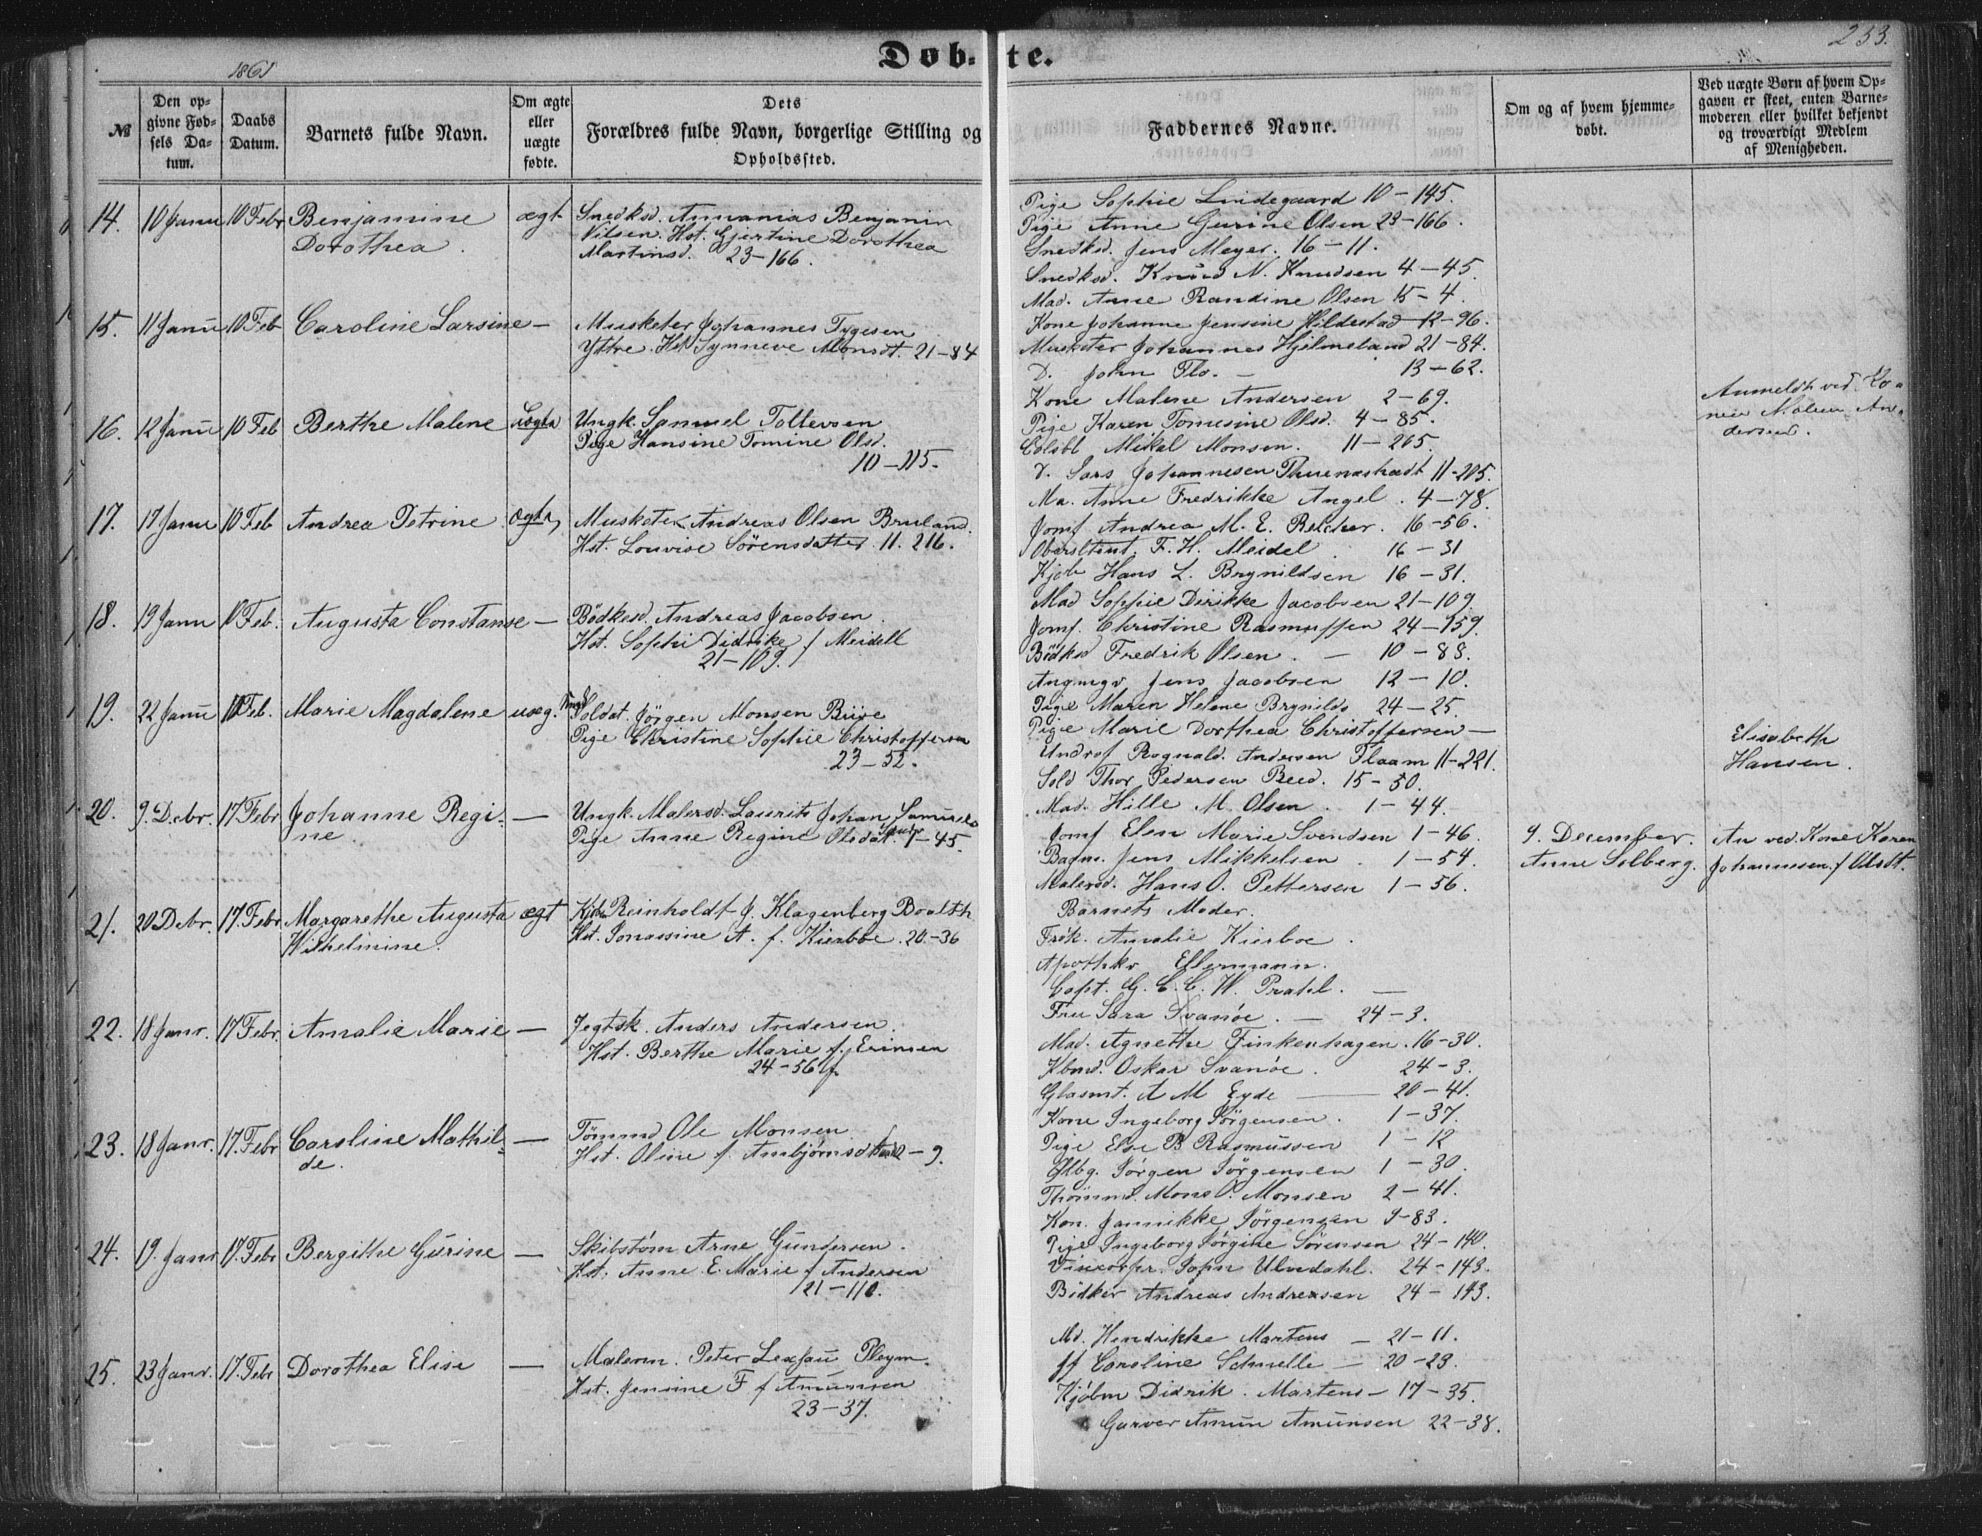 253.
1861
Døb-te.
№
Den opgivne Fødsels Datum.
Daabs Datum.
Barnets fulde Navn.
Om ægte eller uægte fødte.
Dets Forældres fulde Navn, borgerlige Stilling og Opholdssted.
Faddernes Navne.
Om og af hvem hjemmedøbt.
Ved uægte Børn af hvem Opgaven er skeet, enten Barnemoderen eller hvilket bekjendt og troværdigt Medlem af Menigheden.
14. 10 Janu 10 Febr Benjamine Dorothea. ægt
Snedksd. Annanias Benjamin
Nilsen. Hst. Gjertine Dorothea
Martinsd. 23-166.
Pige Sophie Lindegaard 10-145.
Pige Anne Gurine Olsen 23-166.
Snedksd. Jens Meyer. 16-11.
Snedksd. Knud N. Knudsen 4-45.
15. 11 Janu 10 Feb Caroline Larsine -
Musketer Johannes Tygesen
Yttre. Hst Synneve Monsdt. 21-84
Mad. Anne Randine Olsen 15-4.
Kone Johanne Jensine Hildestad 12-96.
Musketer Johannes Hjelmeland 21-84.
D. John Flo. - 13-62.
16. 12 Janu 10 Feb Berthe Malene uægte
Ungk. Samuel Tollevsen
Pige Hansine Tomine Olsd.
10-115.
Kone Malene Andersen 2-69.
Pige Karen Tomesine Olsd. 4-85.
Mikal Monsen. 11-205.
Lars Johannesen 11-205.
Anmeldt ved Ko-
nen Malene An-
dersen.
17. 17 Janu 10 Feb Andrea Petrine ægte,
Musketer Andreas Olsen Bruland.
Hst. Lovise Sørensdatter. 11. 216.
Ma. Anne Fredrikke Angel. 4-78.
Jomf. Andrea M. E. Reicher. 16-56.
Oberstltnt. F. H. Meidel. 16-31
Kjøb Hans L. Brynildsen 16-31.
18. 19 Janu 10 Feb. Augusta Constanse -
Bødkesd. Andreas Jacobsen.
Hst. Sophi Didrike f Meidell
21-109.
Mad Sophie Dirikke Jacobsen 21-109.
Jomf. Christine Rasmussen 24-159.
Bødksd Fredrik Olsen. - 10-88.
Jens Jacobsen 12-10.
19. 22 Janu 10 Feb. Marie Magdalene uæg.
Soldat. Jörgen Monsen Biire
Pige Christine Sophie Christoffersen
23-52.
Pige Maren Helene Brynilds 24-25.
Pige Marie Dorthea Christoffersen -
Undrof Rognald. Andersen Flaam 11-221.
Sold Thor Pedersen Reed. 15-50.
Elisabeth
Hansen.
20. 9. Debr. 17 Febr Johanne Regi-
ne -
Ungk. Malersd. Laurits Johan Samuels
Pige Anne Regine Olsdat. 1-45.
Mad. Hille M. Olsen. 1-44.
Jomf Elen Marie Svendsen 1-46.
Jens Mikkelsen. 1-54.
Malersd. Hans O. Pettersen 1-56.
9. December.
Anne Solberg.
An ved. Kone Karen
Johannesen f Olsdt.
21. 20 Debr. 17. Febr Margarethe Augusta
Wilhelmine. ægt
Reinholdt J. Klagenberg Booth
Hst. Jonassine A. f. Kierboe. 20-36
Barnets Moder.
Frøk. Amalie Kierboe.
Apothkr Ellermann.
Capt. G. C. C. W. Prahl. -
22. 18 Janr. 17 Febr. Amalie Marie -
Jegtsk. Anders Andersen.
Hst. Berthe Marie f. Erinsen
24-56
Fru Sara Svanöe. - 24-3.
Mad. Agnethe Finkenhagen. 16-30.
Oskar Svanöe. 24-3.
Glasmt. A M Eyde - 20-41.
23. 18 Janr. 17. Febr Caroline Mathil-
de. -
Tømmd Ole Monsen
Hst. Oline f. Anbjörnsd - 9.
Kone Ingeborg Jörgensen. 1-37.
Pige Else B Rasmussen 1-12
Jörgen Jörgensen 1-30.
Thömmd. Mons O. Monsen 2-41.
24. 19. Janr 17. Febr Bergithe Gurine -
Skibstøm Arne Gundersen.
Hst. Anne E. Marie f Andersen
21-110.
Kon. Jannikke Jörgensen 9-83.
Pige Ingeborg Jörgine Sörensen 24-140.
John Ulvdahl. 24-143.
Bødker Andreas Andreasen 24-143.
25. 23 Janr. 17. Febr Dorothea Elise -
Malerm. Peter Lexau Pleym.
Hst. Jensine F f Amunsen
23-37.
Md. Hendrikke Martens - 21-11.
Caroline Schnelle - 20-23.
Kjøbm Didrik. Martens - 17-35.
Garver Amun Amunsen 22-38.